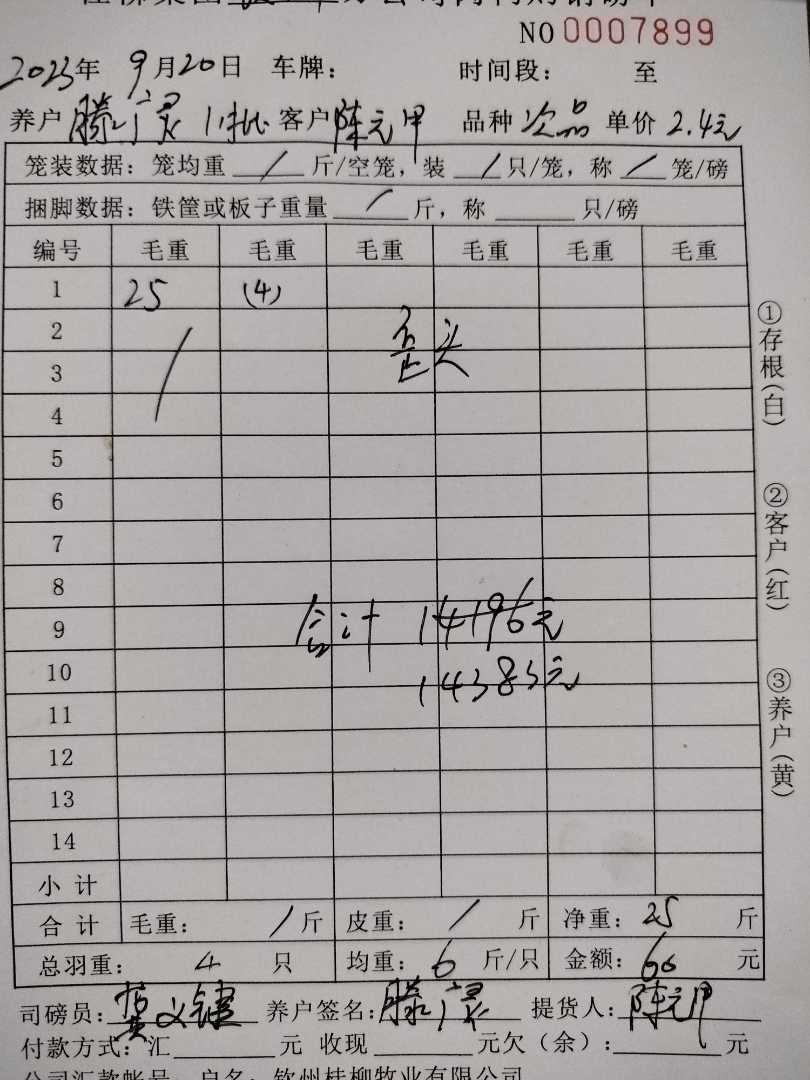 NO 0007899
2023年 9月20日 车牌: 时间段: 至
养户 滕广灵 1批 客户 陈元甲 品种 次品 单价 2.4元
笼装数据: 笼均重 / 斤/空笼, 装 / 只/笼, 称 / 笼/磅
捆脚数据: 铁筐或板子重量 / 斤, 称 只/磅
编号 毛重 毛重 毛重 毛重 毛重 毛重
1 25 (4)
2 歪头
3
4
5
6
7
8
9 合计 14196元
10 14383元
11
12
13
14
小计
合计 毛重: / 斤 皮重: / 斤 净重: 25 斤
总羽重: 4 只 均重: 6 斤/只 金额: 60 元
司磅员: 养户签名: 滕广灵 提货人: 陈元甲
付款方式: 汇 元 收现 元欠(余): 元
公司汇款帐号: 户名: 钦州桂柳牧业有限公司
①存根(白)
②客户(红)
③养户(黄)